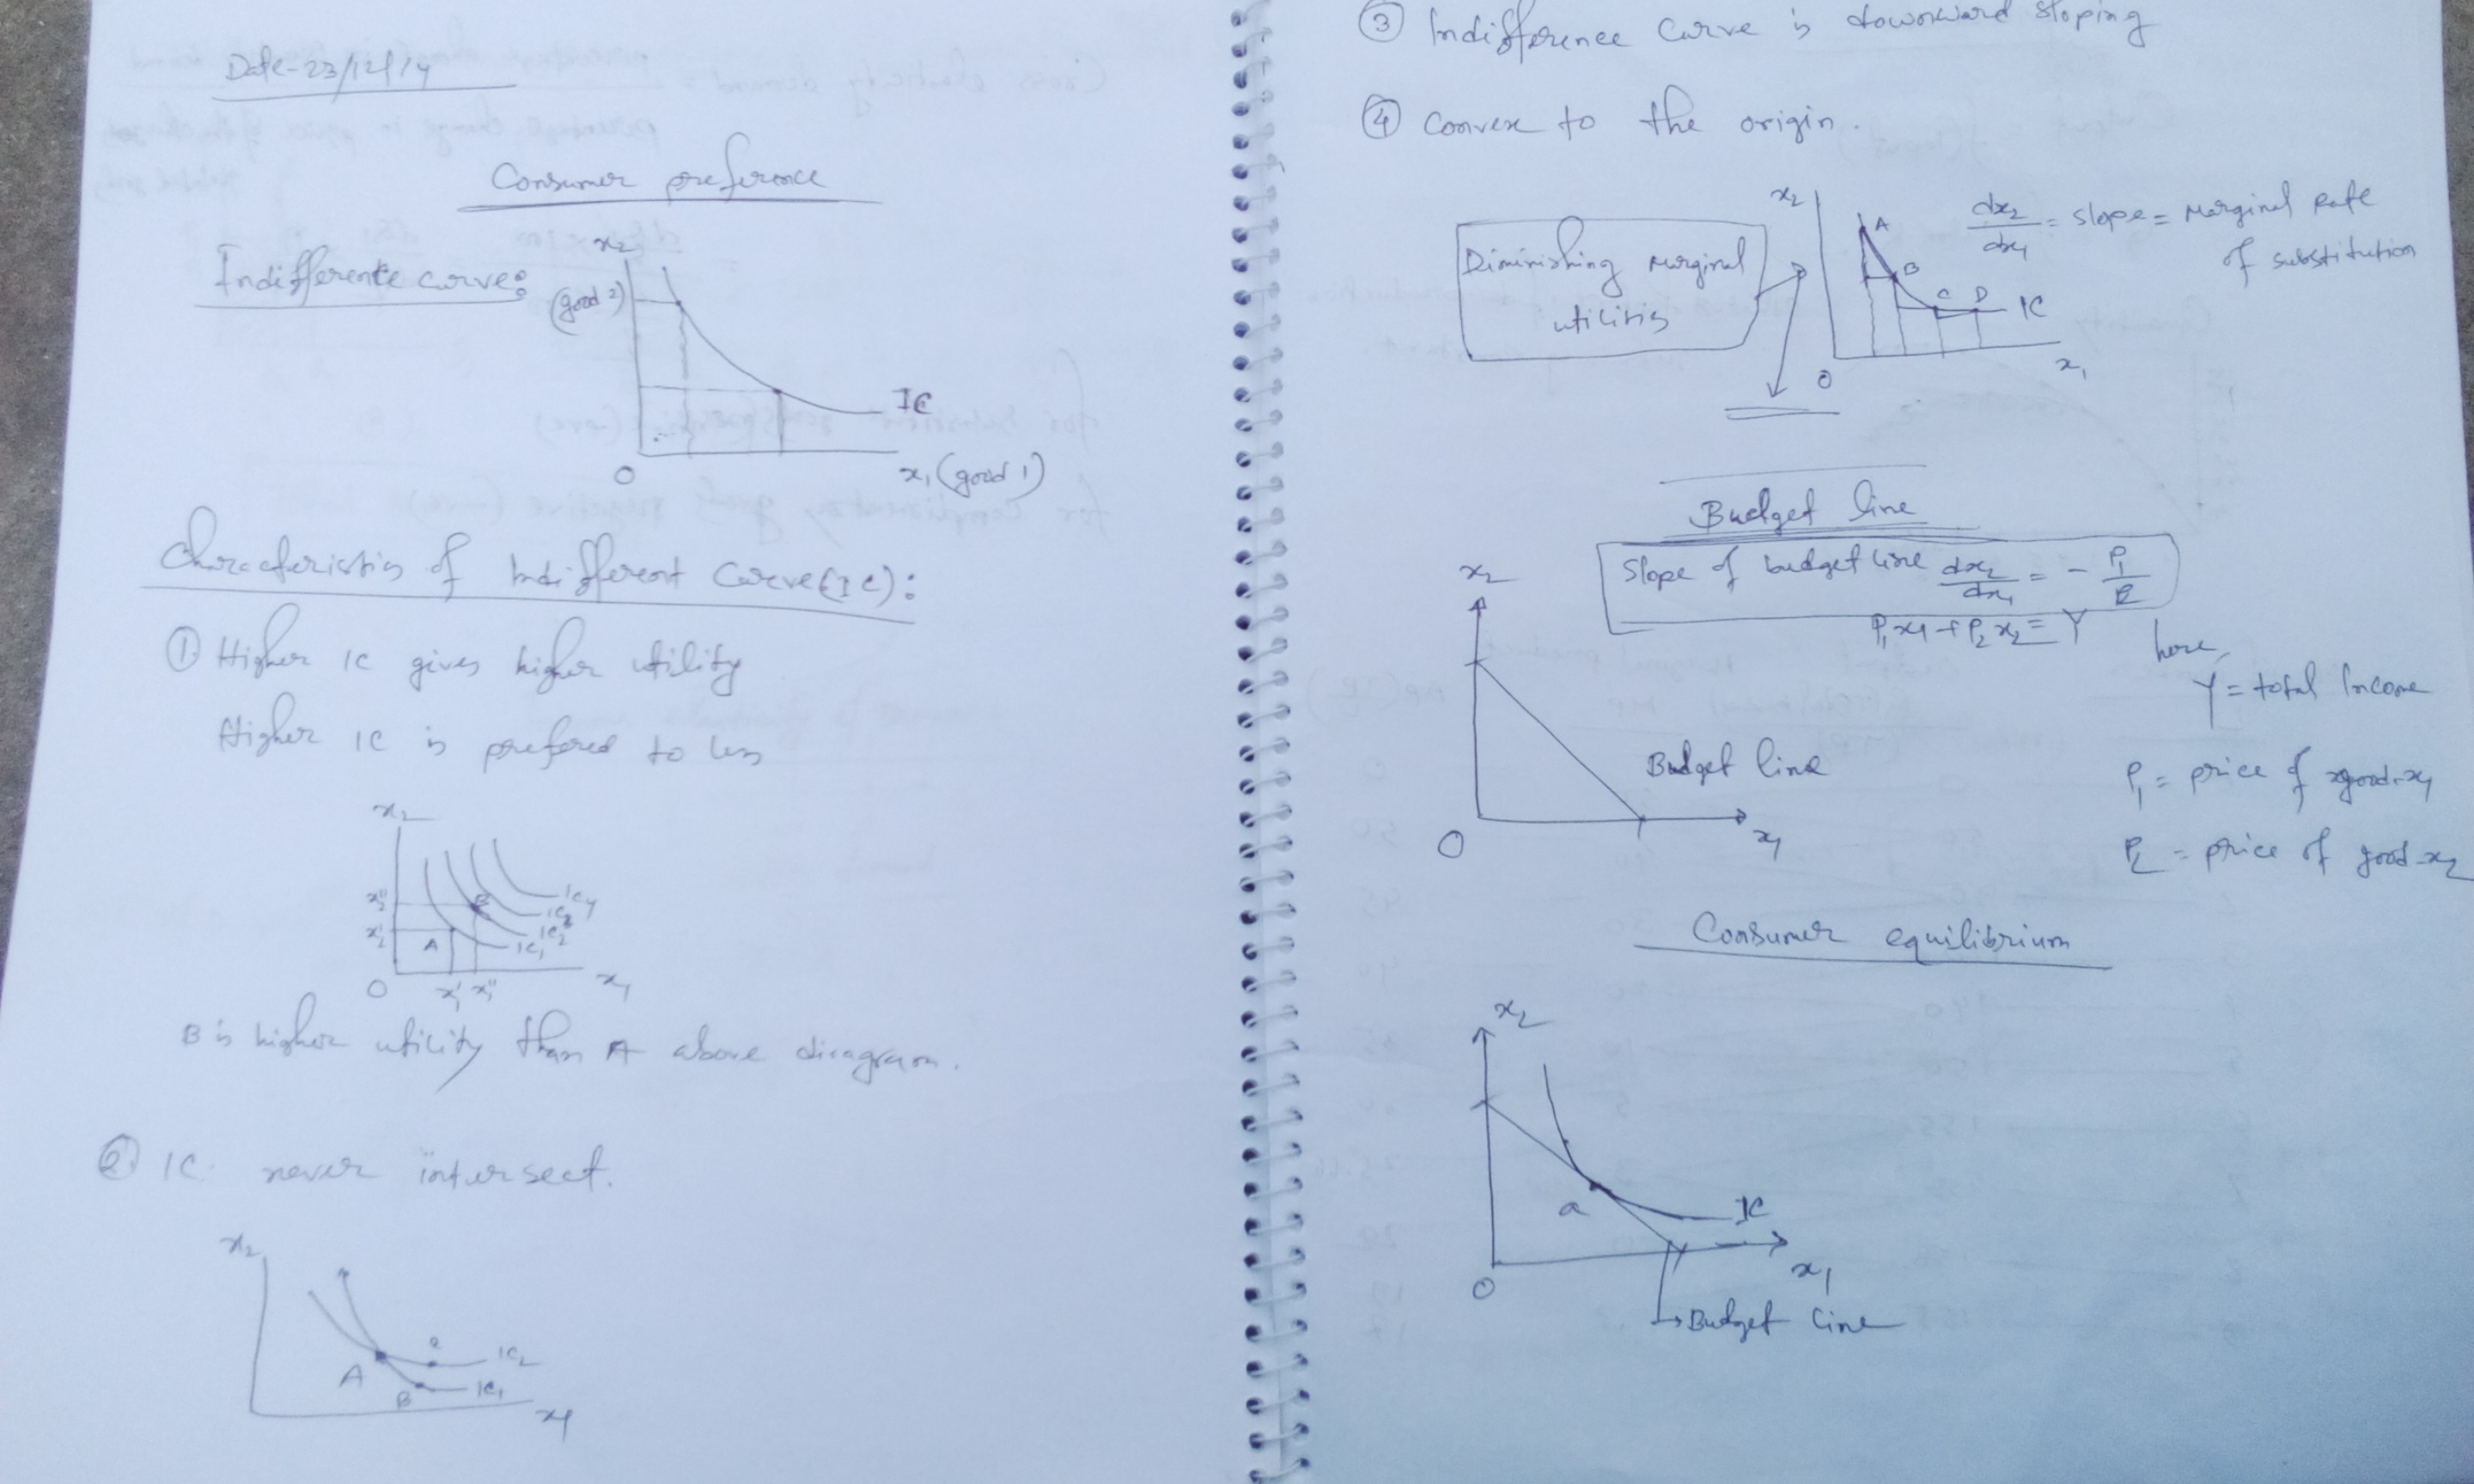 Date-23/12/14
Consumer preference
Indifferente curve:
x2
(good 2)
IC
O
x1 (good 1)
Characteristics of Indifferent Curve(IC):
① Higher IC gives higher utility
Higher IC is prefered to less
x2
x2''
x2'
A
B
IC4
IC3
IC2
IC1
O
x1' x1''
x1
B is higher utility than A above diagram.
② IC never intersect.
x2
A
B
IC2
IC1
x1
③ Indifference Curve is downward sloping
④ Convex to the origin.
Diminishing marginal
utilities
x2
A
B
C D
IC
O
x1
dx2/dx1 = slope = Marginal Rate
of substitution
Budget line
Slope of budget line dx2/dx1 = - P1/P2
P1x1+P2x2=Y
here,
Y = total Income
P1 = price of good-x1
P2 = price of good-x2
x2
Budget line
O
x1
Consumer equilibrium
x2
a
IC
O
x1
Budget line